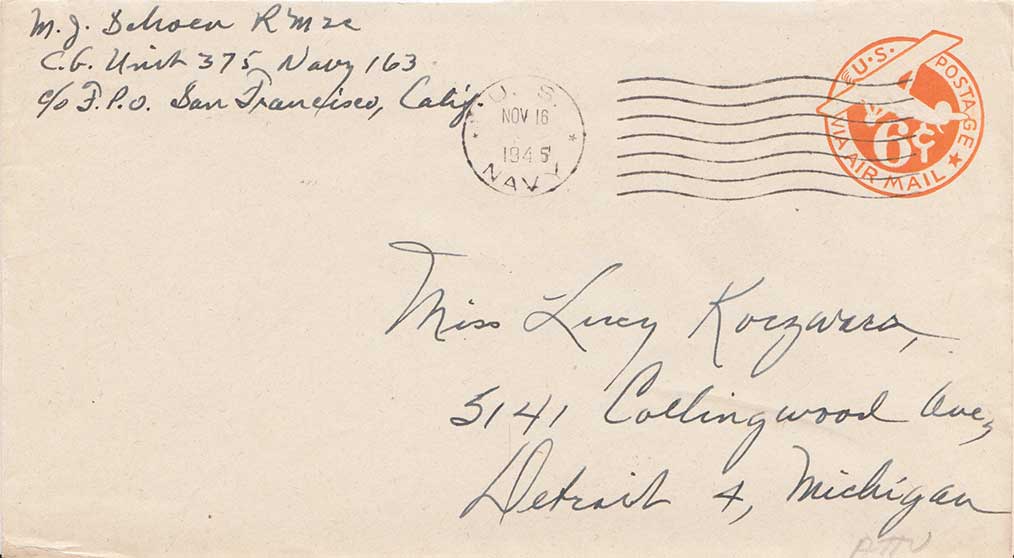 M. J. Schoen RM2c
C.G. Unit 375 Navy 163
c/o F.P.O. San Francisco, Calif.
U. S.
NOV 16
1945
NAVY
U.S. POSTAGE
6¢
VIA AIR MAIL
Miss Lucy Koczwara,
5141 Collingwood Ave,
Detroit 4, Michigan